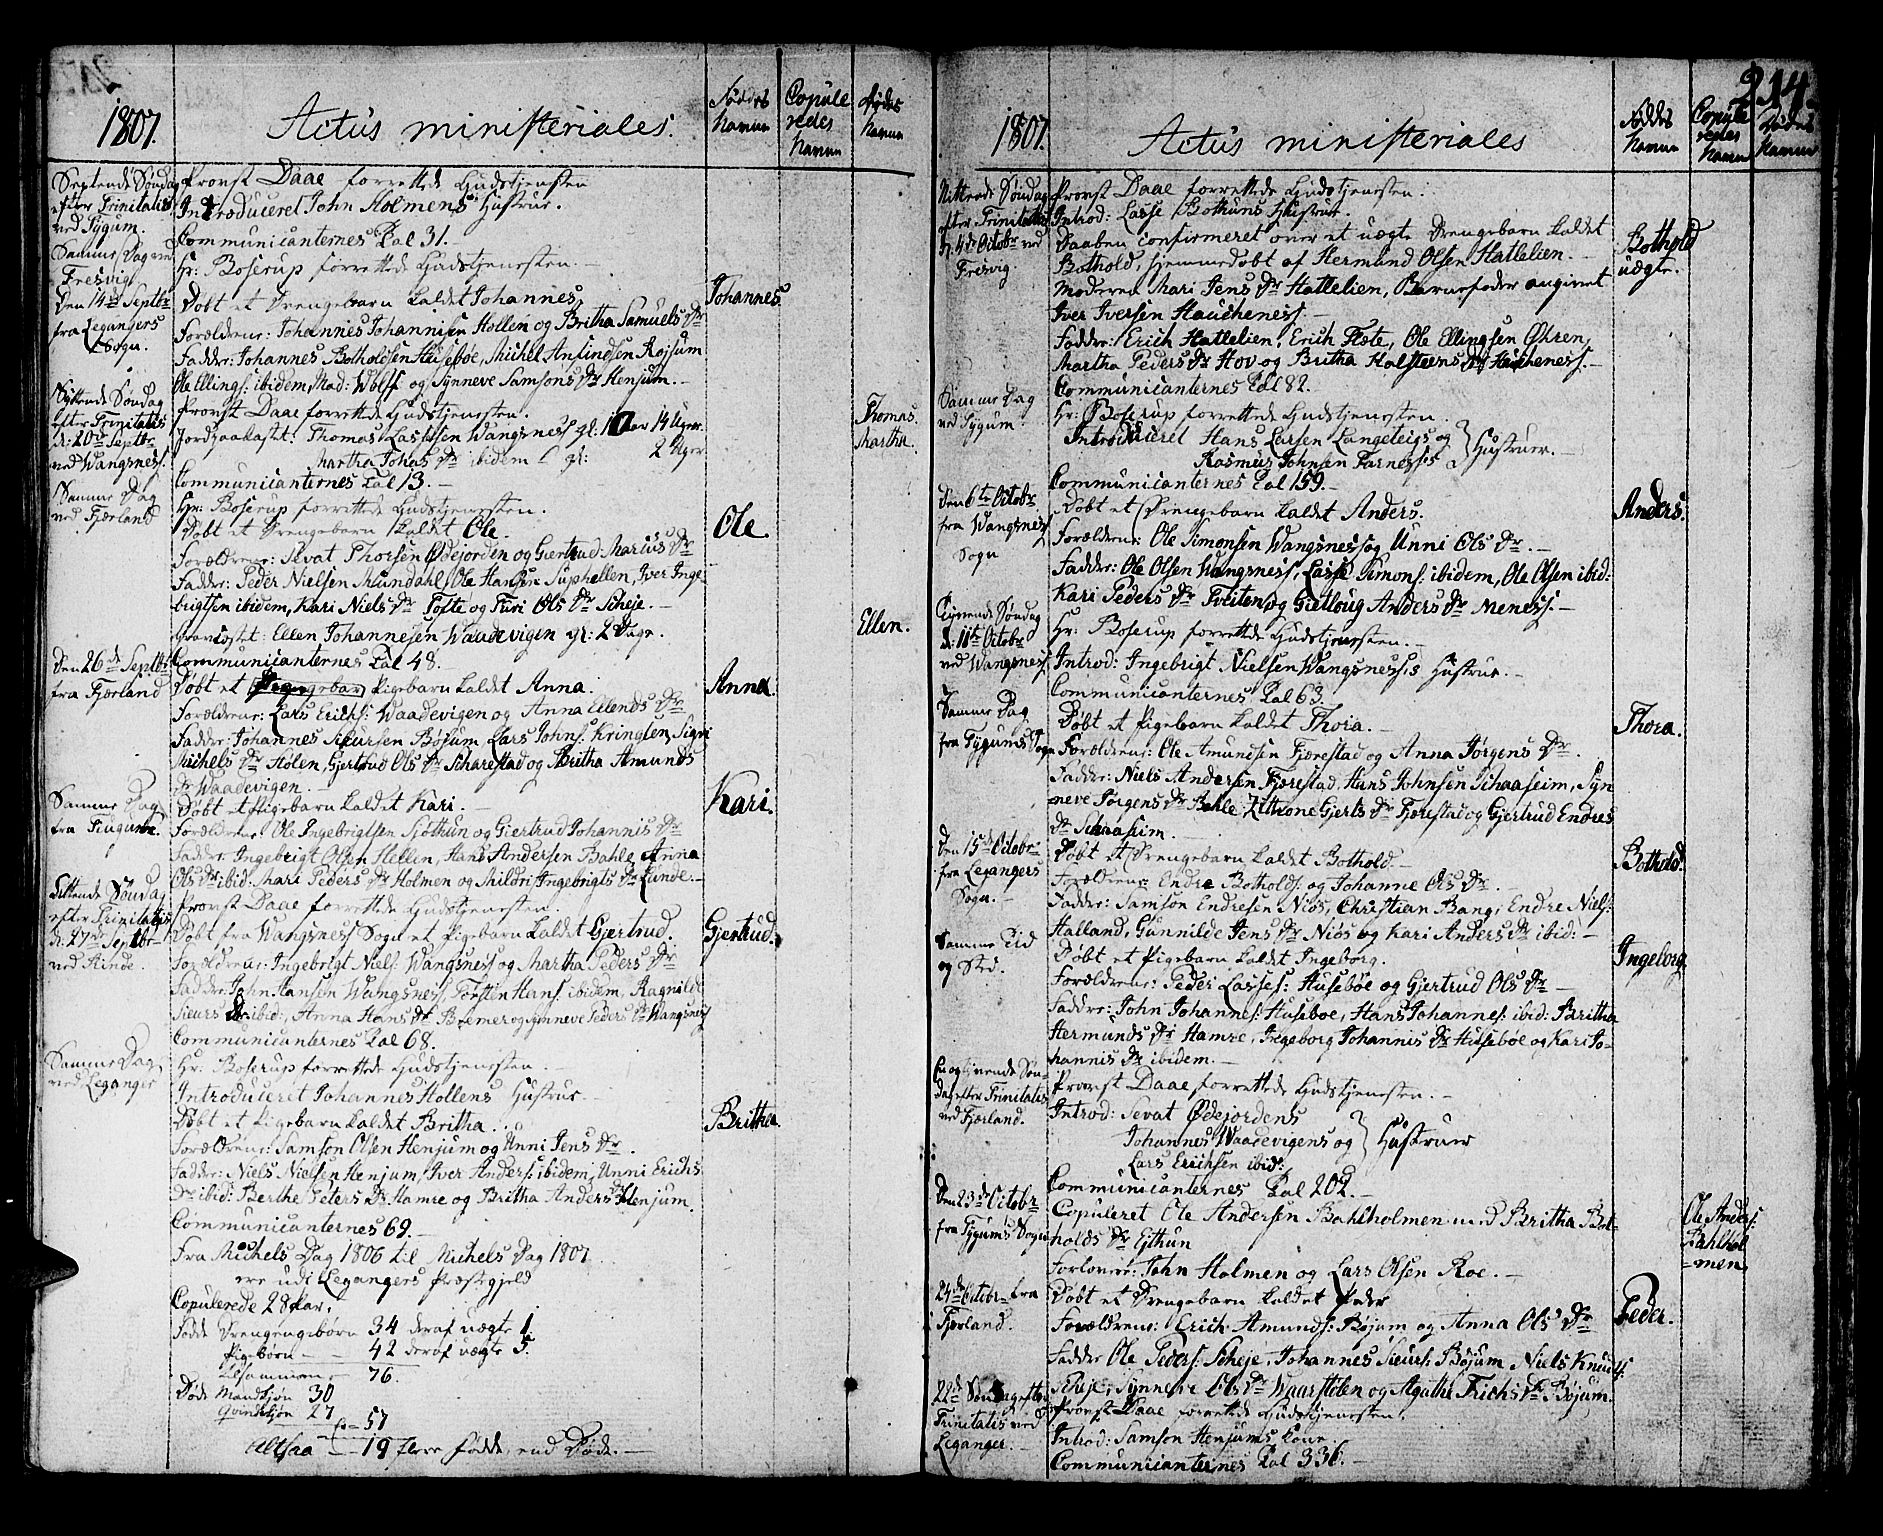 1807.
Actus ministeriales.
Føddes Namen
Copuleredes Namen
Dødes Namen
Sextende Søndag
efter Trinitatis
ved Tygum.
Provst Daae forrettede Gudstjensten
Introduceret John Holmens Hustrue.
Communicanternes Tal 31.
Samme Dag ved
Fresvig
Hr: Boserup forrettede Gudstjensten.
Den 14de Septbr
fra Legangers
Sogn.
Døbt et Drengebarn kaldet Johannes
Johannes
Forældrene: Johannes Johannisen Hollen og Britha Samuels Dr
Fadder: Johannes Botholdsen Huseböe, Michel Amundsen Røjsum
Ole Ellings: ibidem, Mad: Wolff og Synneve Samsons Dr Henjum.
Syttende Søndag
efter Trinitatis
d: 20de Septbr
ved Wangsness.
Provst Daae forrettede Gudstjensten.
Jordpaakastet: Thomas Lassesen Wangsness gl: 14 Uger
Thomas
Martha Johas Dr ibidem gl: 2 Uger
Martha.
Communicanternes Tal 13.
Samme Dag
ved Fjærland
Hr: Boserup forrettede Gudstjensten.
Døbt et Drengebarn kaldet Ole.
Ole
Forældrene: Sevat Thorsen Ødejorden og Giertrud Marcus Dr
Fadder: Peder Nielsen Mundahl, Ole Hansen Suphellen, Iver Inge-
brigtsen ibidem, Kari Niels Dr Tofte og Turi Ols Dr Scheje.
Gravfæstet: Ellen Johannesen Waadevigen gl: 2 Dage.
Ellen.
Communicanternes Tal 48.
Den 26de Septbr
fra Fjærland
Døbt et Pigebarn kaldet Anna.
Anna.
Forældrene: Lars Erichs: Waadevigen og Anna Ellends Dr
Fadder: Johannes Siursen Bøjum, Lars Johns: Kringlen, Sigri
Michels Dr Hølen, Gjertrud Ols Dr Scharestad og Britha Amunds
Dr Waadevigen.
Samme Dag
fra
Døbt et Pigebarn kaldet Kari.
Kari
Forældrene: Ole Ingebrigtsen Sjøthun og Giertrud Johannis Dr
Fadder: Ingebrigt Olsen Hellen, Hans Andersen Bahle, Anna
Ols Dr ibid: Mari Peders Dr Holmen og Mildri Ingebrigts Dr Lunde.
Attende Søndag
efter Trinitatis
d: 27de Septbr
ved Rinde.
Provst Daae forrettede Gudstjensten.
Døbt fra Wangsness Sogn et Pigebarn kaldet Gjertrud.
Gjertrud.
Forældrene: Ingebrigt Niels: Wangsness og Martha Peders Dr
Fadder: John Hansen Wangsness, Torsten Hans: ibidem, Ragnilde
Sieurs Dr ibid:, Anna Hans Dr og Synneve Peders Dr Wangsness
Communicanternes Tal 68.
Samme Dag
ved Leganger
Hr: Boserup forrettede Gudstjensten.
Introduceret Johannes Hollens Hustrue
Døbt et Pigebarn kaldet Britha.
Britha.
Forældrene: Samson Olsen Henjum og Unni Jens Dr.
Fadder: Niels Nielsen Henjum, Iver Anders: ibidem, Unni Erichs
Dr ibid: Berthe Peters Dr Hamre og Britha Anders Dr Henjum.
Communicanternes 69.
Fra Michels Dag 1806 til Michels Dag 1807
ere udi Legangers Præstegjeld
Copulerede 28 Par.
Fødde Drengebørn 34 deraf uægte 1
Pigebørn 42 deraf uægte 5.
Tilsammen 76.
Døde Mandkjøn 30
Qvindekjøn 27
57
Altsaa 19 flere fødde, end Døde.
214.
1807.
Actus ministeriales
Føddes Namen
Copuleredes Namen
Dødes Namen
Nittende Søndag
efter Trinitatis
d: 4de Octobr ved
Fresvig
Provst Daae forrettede Gudstjensten.
Introd: Lasse Bothuns Hustrue.
Daaben confirmeret over et uægte Drengebarn kaldet
Bothold
uægte.
Bothold, hjemmedøbt af Hermund Olsen Hattelien.
Moderen Mari Jens Dr Hattelien, Barnefader angivet
Iver Iversen Haucheness.
Fadder: Erich Hattelien, Erich Flete, Ole Ellingsen Øhren,
Martha Peders Dr Hov og Britha Holsteens Dr Haucheness.
Communicanternes Tal 82.
Samme Dag
ved Tygum.
Hr: Boserup forrettede Gudstjensten.
Introduceret Hans Larsen Langeteigs og
Rasmus Johnsen Farness's } Hustruer.
Communicanternes Tal 159.
Den 6te Octobr
fra Wangsness
Sogn
Døbt et Drengebarn kaldet Anders.
Anders.
Forældrene: Ole Simonsen Wangsness og Unni Ols Dr.
Fadder: Ole Olsen Wangsness, Lasse Simons: ibidem, Ole Olsen ibid:
Kari Peders Dr Tveiten og Gietloug Anders Dr Meness.
Tyvende Søndag
d: 11te Octobr
ved Wangsness.
Hr: Boserup forrettede Gudstjensten.
Introd: Ingebrigt Nielsen Wangsness's Hustrue.
Communicanternes Tal 63.
Samme Dag
fra Tygums Sogn
Døbt et Pigebarn kaldet Thora.
Thora.
Forældrene: Ole Amundsen Fjærestad og Anna Jørgens Dr.
Fadder: Niels Andersen Fjærestad, Hans Johnsen Schaaseim, Syn-
neve Jørgens Dr Bahle, Gjerts Dr Fjærestad og Gjertrud Endres
Dr Schaaseim.
Den 15de Octobr
fra Legangers
Sogn.
Døbt et Drengebarn kaldet Bothold.
Bothold.
Forældrene: Endre Botholds: og Johanne Ols Dr.
Fadder: Samson Endresen Niøs, Christian Bang, Endre Niels:
Halland, Gunnilde Jens Dr Niøs og Kari Anders Dr ibid:
Samme Tid
og Sted.
Døbt et Pigebarn kaldet Ingeborg.
Ingeborg
Forældrene: Peder Lasses: Huseböe og Gjertrud Ols Dr
Fadder: John Johannes: Huseboe, Hans Johannes: ibid: Britha
Hermunds Dr Hamre, Ingeborg Johannis Dr Huseböe og Kari Jo-
hannis Dr ibidem.
Een og tyvende Søn-
dag efter Trinitatis
ved Fjærland.
Provst Daae forrettede Gudstjensten.
Introd: Sevat Ødejordens
Johannes Waadevigens og
Lars Erichsen ibid: } Hustruer
Communicanternes Tal 202.
Den 23de Octobr
fra Tygums Sogn
Copuleret Ole Andersen Bahlholmen med Britha Bot-
holds Dr Ejthun
Ole Anders:
Bahlhol-
men
Forlovere: John Holmen og Lars Olsen Roe.
24de Octobr fra
Fjærland.
Døbt et Drengebarn kaldet Peder
Peder.
Forældrene: Erich Amunds: Bøjum og Anna Ols Dr
Fadder Ole Peders: Scheje, Johannes Sieurs: Bøjum, Niels Knuds:
Scheje, Synneve Ols Dr Waarstolen og Agathe Erichs Dr Bøjum.
22de Søndag efter
Trinitatis ved
Leganger.
Provst Daae forrettede Gudstjensten.
Introd: Samson Henjums Kone.
Communicanternes Tal 336.